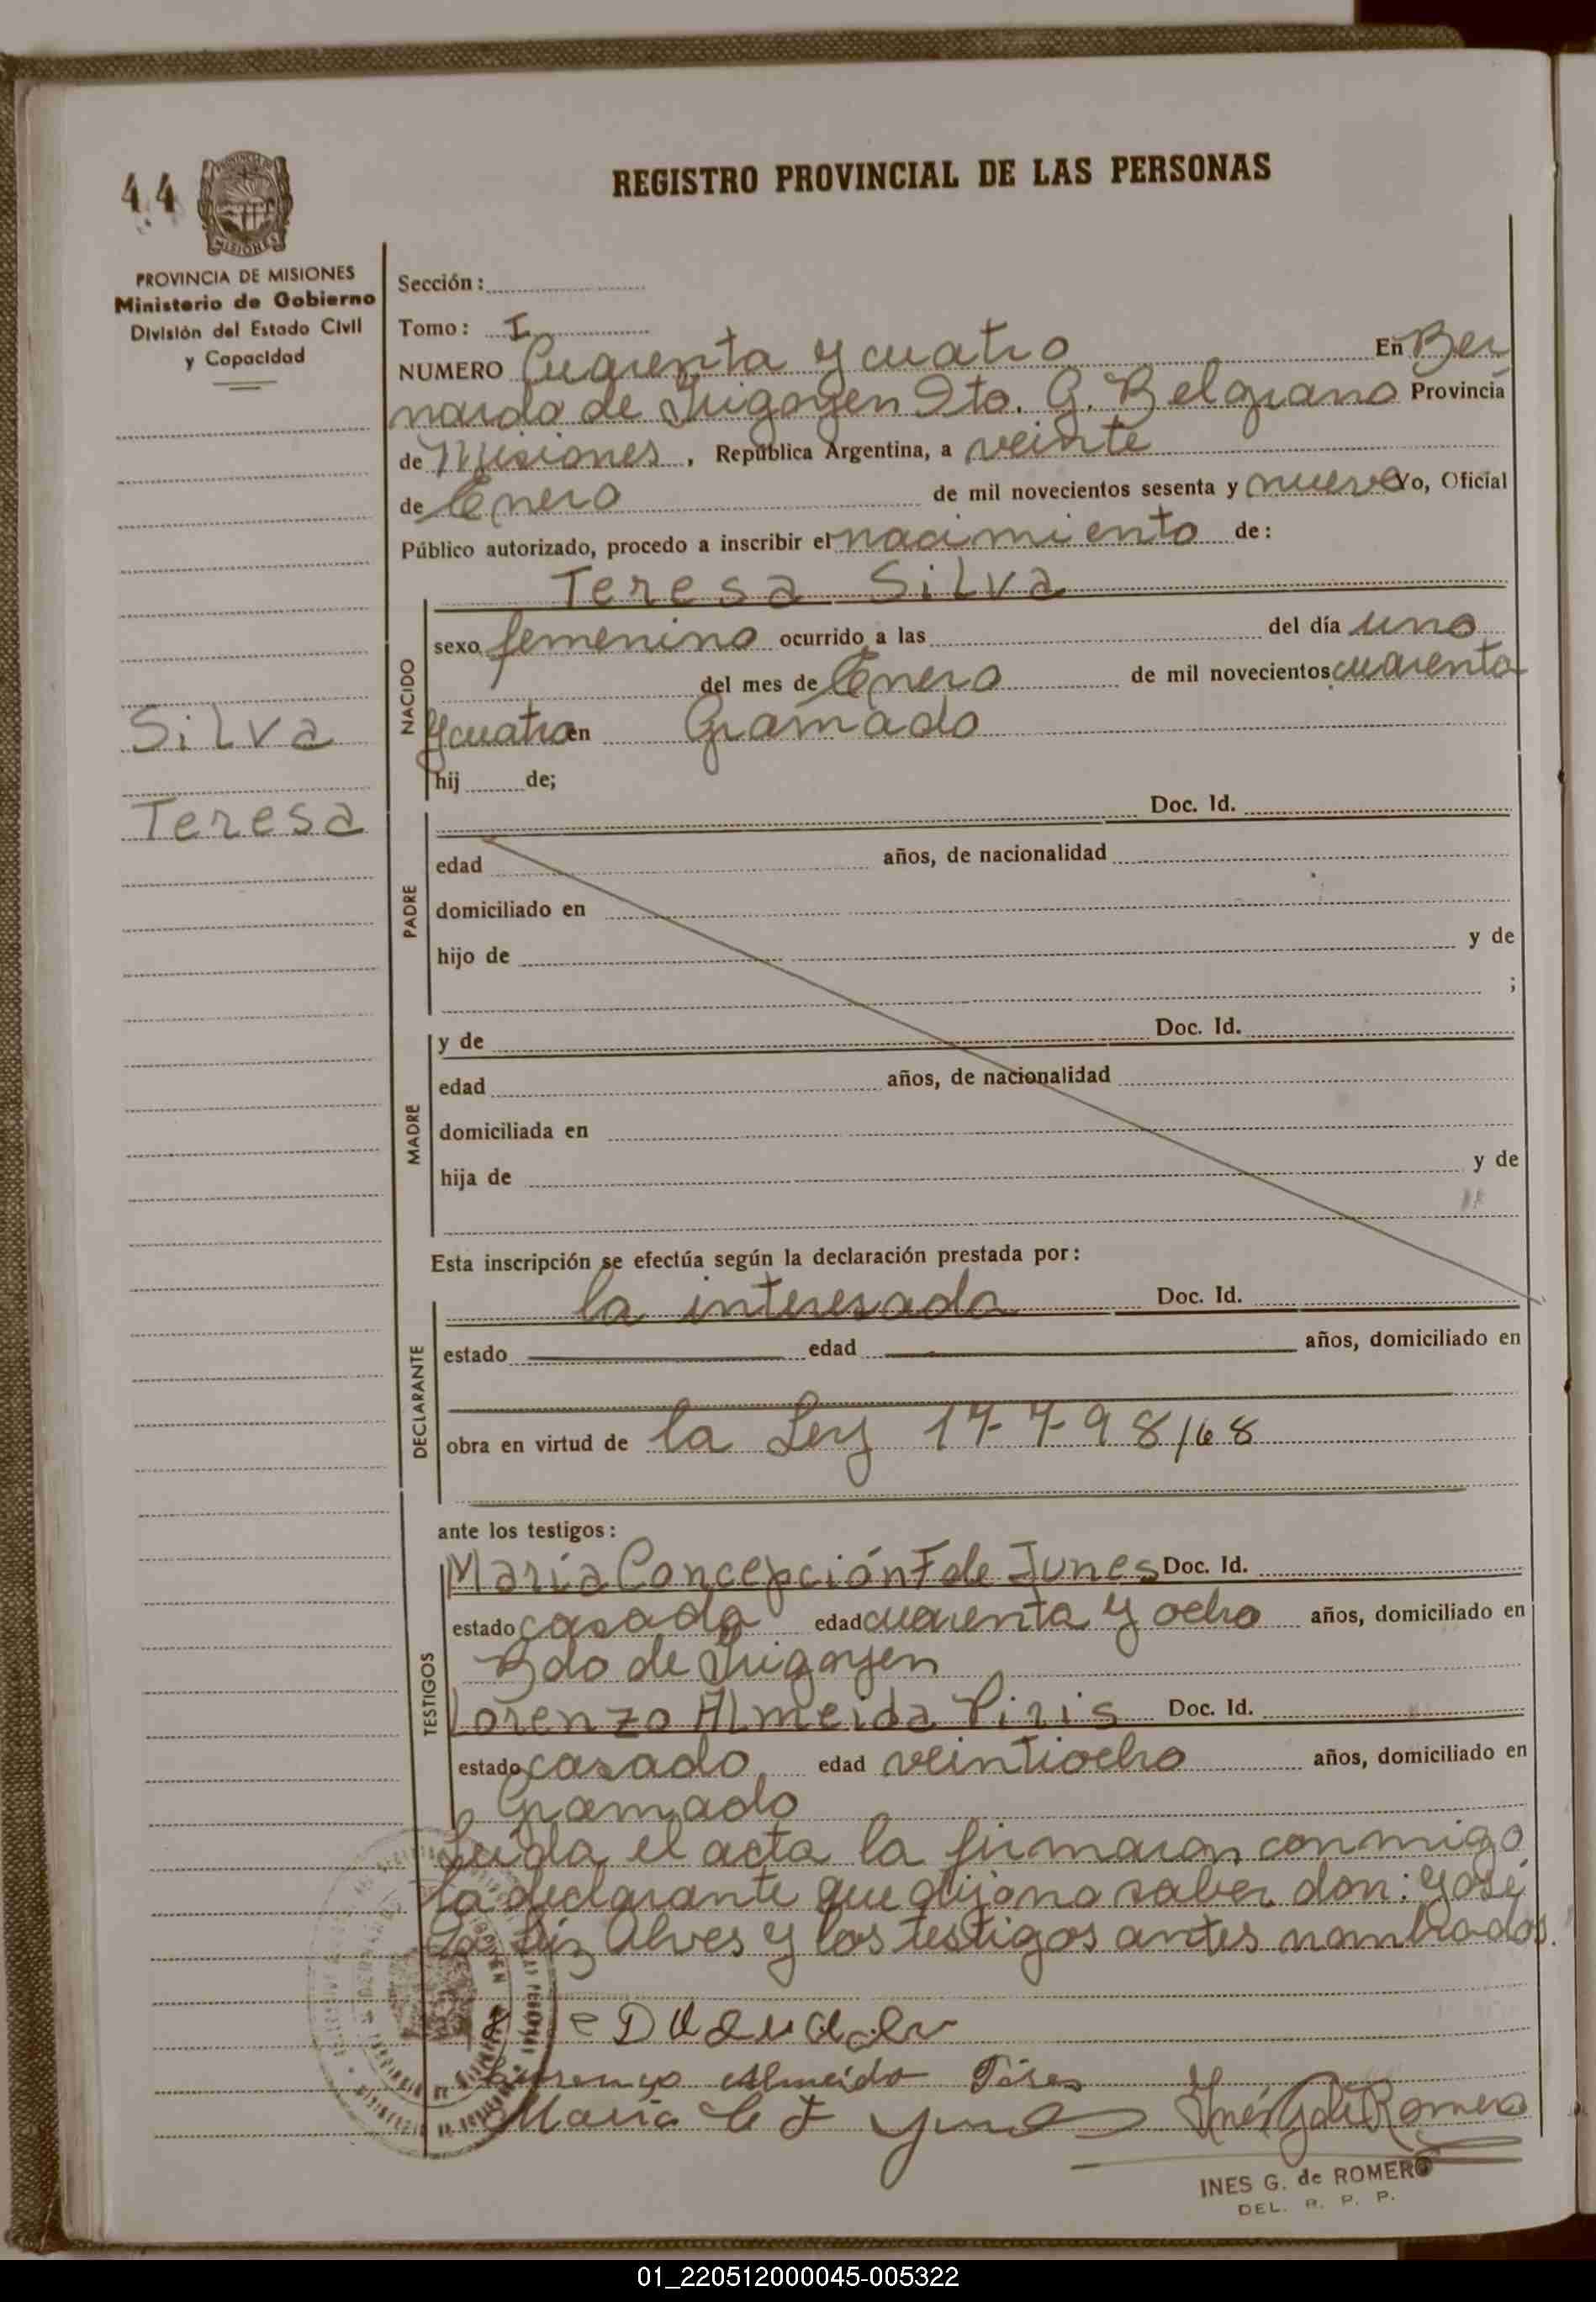 44
REGISTRO PROVINCIAL DE LAS PERSONAS
PROVINCIA DE MISIONES
Ministerio de Gobierno
División del Estado Civil
y Capacidad
Sección:
Tomo: I
NUMERO Cuarenta y cuatro En Ber
nardo de Irigoyen Dto. G. Belgrano Provincia
de Misiones, República Argentina, a veinte
de Enero de mil novecientos sesenta y nueve Yo, Oficial
Público autorizado, procedo a inscribir el nacimiento de:
Teresa Silva
NACIDO
sexo femenino ocurrido a las del día uno
del mes de Enero de mil novecientos cuarenta
y cuatro en Gramado
hij de;
Silva
Teresa
PADRE
Doc. Id.
edad años, de nacionalidad
domiciliado en
hijo de y de
;
MADRE
y de Doc. Id.
edad años, de nacionalidad
domiciliada en
hija de y de
Esta inscripción se efectúa según la declaración prestada por:
DECLARANTE
la interesada Doc. Id.
estado edad años, domiciliado en
obra en virtud de la Ley 17798/68
ante los testigos:
TESTIGOS
María Concepción F de Junes Doc. Id.
estado casada edad cuarenta y ocho años, domiciliado en
Bdo de Irigoyen
Lorenzo Almeida Piris Doc. Id.
estado casado edad veintiocho años, domiciliado en
Gramado
Leída el acta la firmaron conmigo
la declarante que dijo no saber don: José
Alves y los testigos antes nombrados.
Lorenzo Almeida Pires
María C F
Inés G de Romero
INES G. de ROMERO
DEL. R. P. P.
01_220512000045-005322